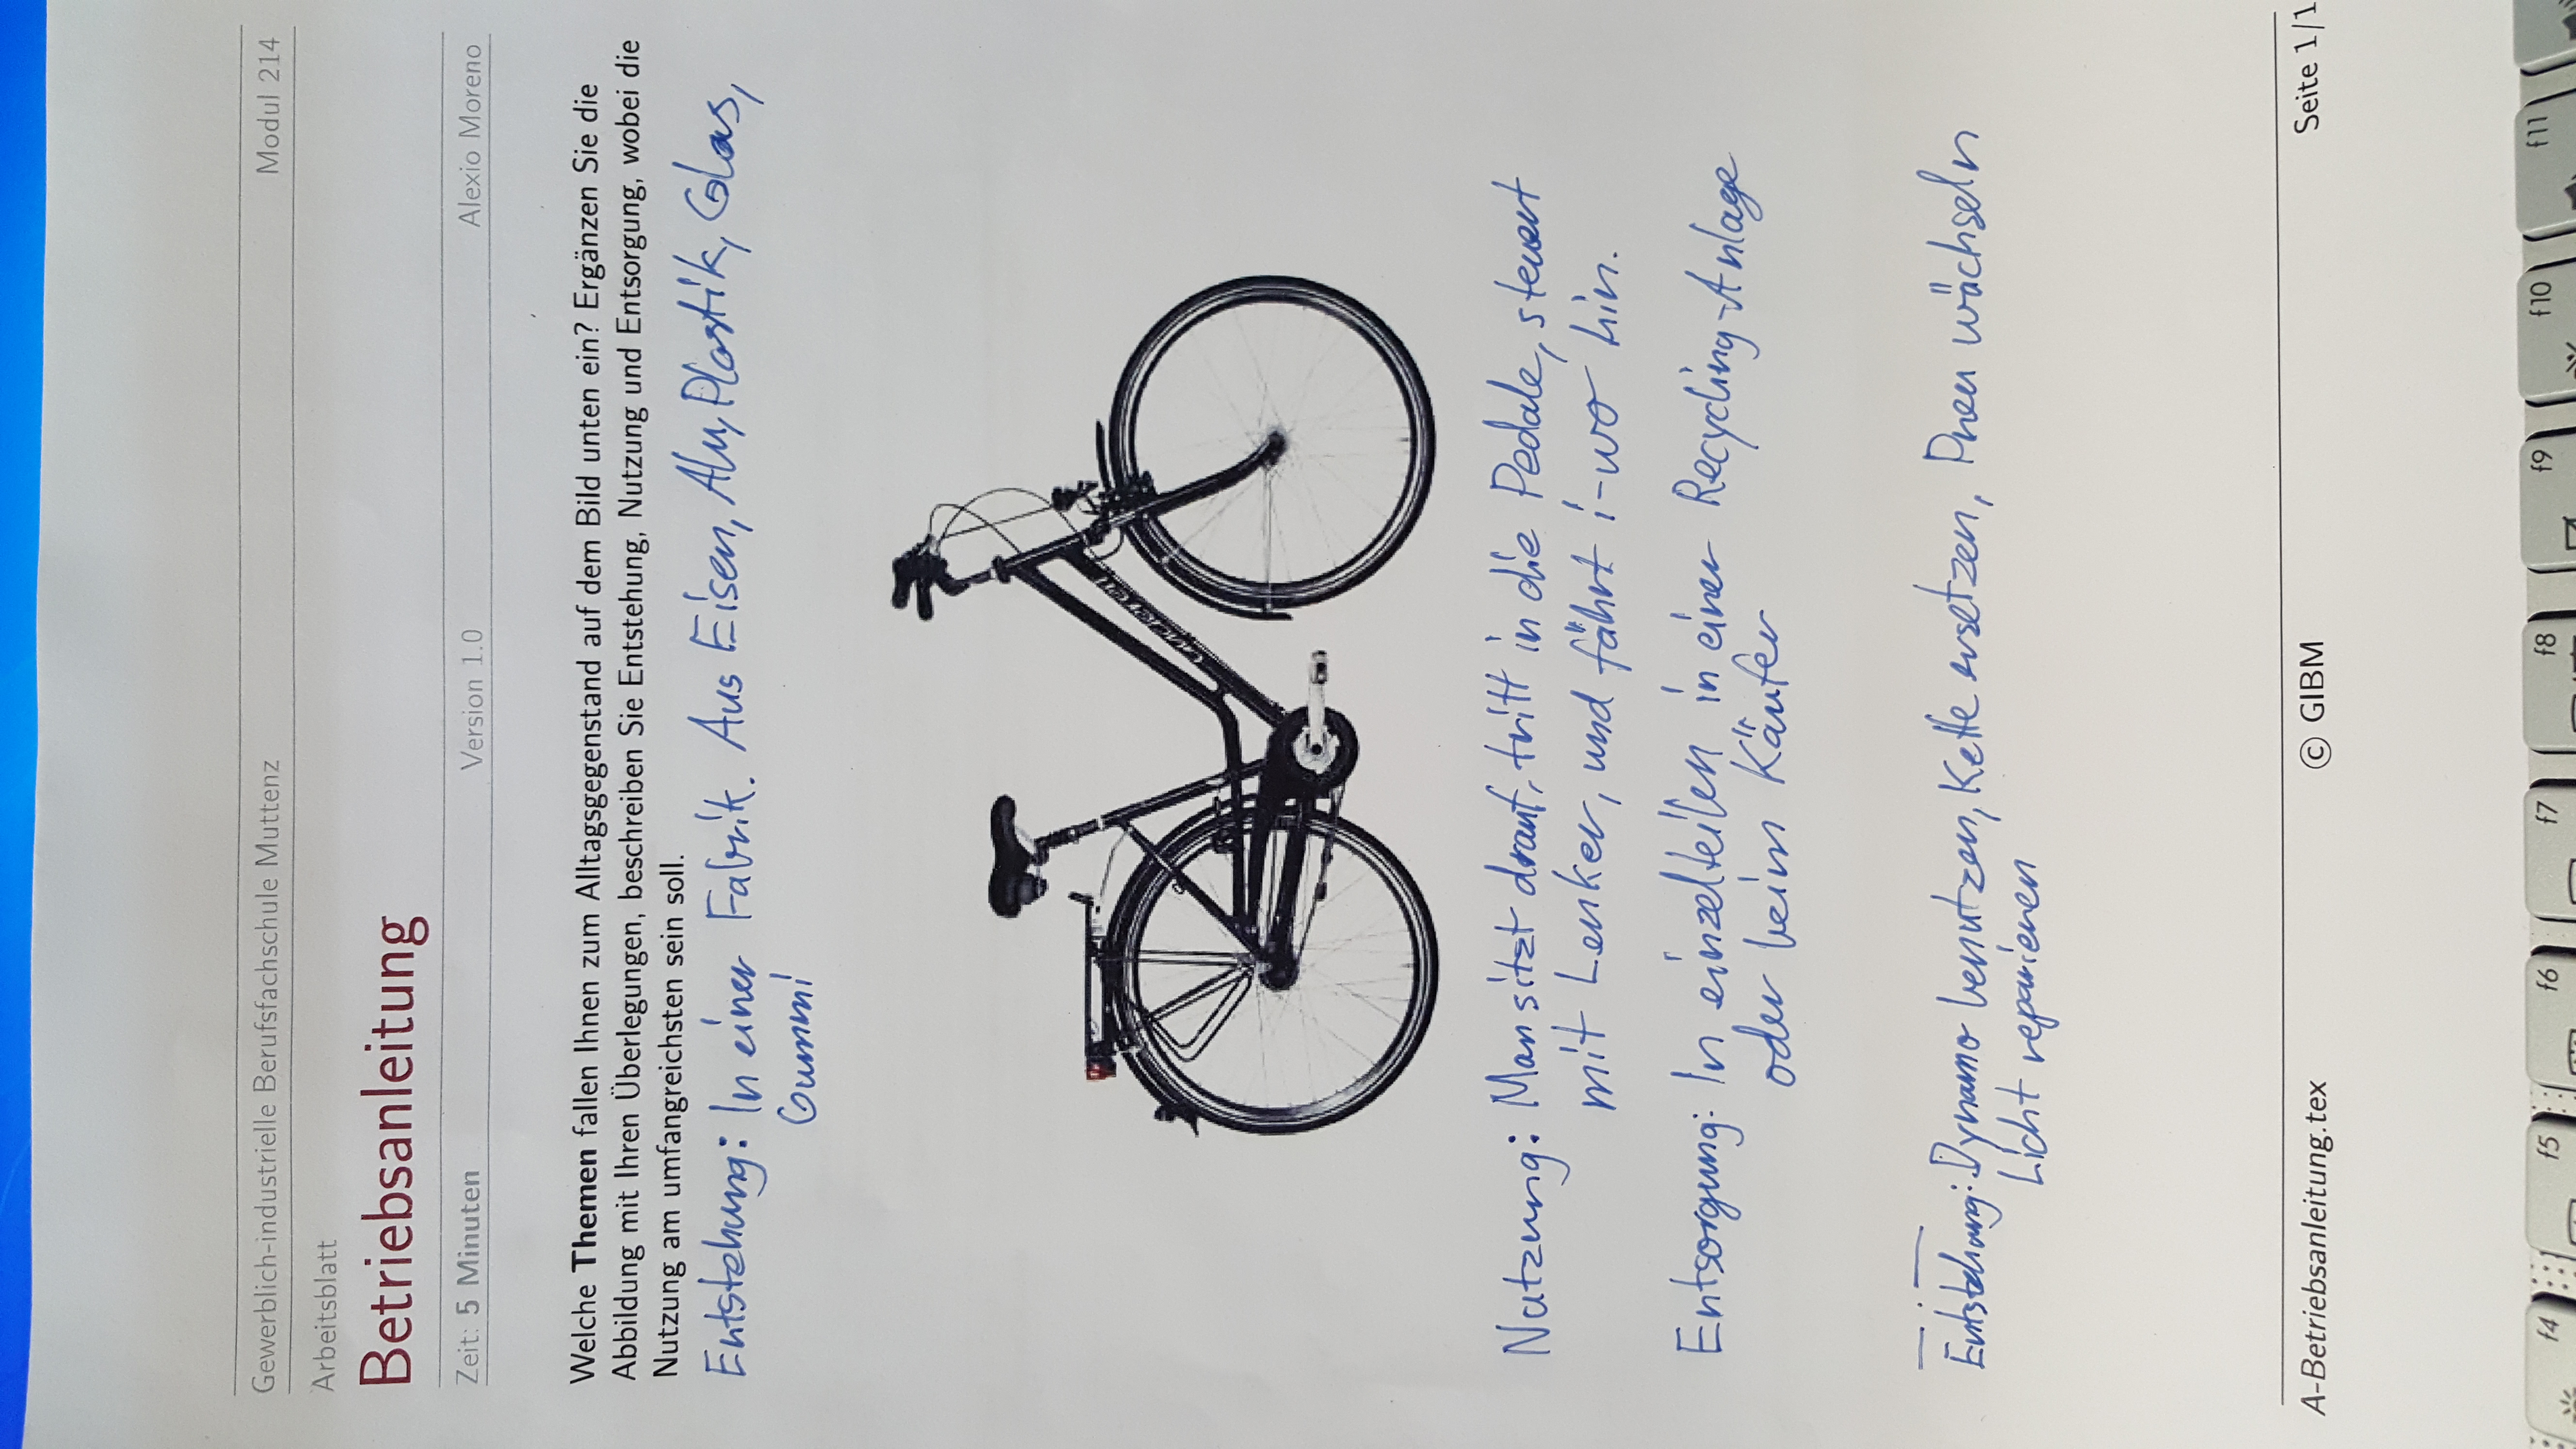 Gewerblich-industrielle Berufsfachschule Muttenz Modul 214
Arbeitsblatt
Betriebsanleitung
Zeit: 5 Minuten Version 1.0 Alexio Moreno
Welche Themen fallen Ihnen zum Alltagsgegenstand auf dem Bild unten ein? Ergänzen Sie die
Abbildung mit Ihren Überlegungen, beschreiben Sie Entstehung, Nutzung und Entsorgung, wobei die
Nutzung am umfangreichsten sein soll.
Entstehung: In einer Fabrik. Aus Eisen, Alu, Plastik, Glas,
Gummi
Nutzung: Man sitzt drauf, tritt in die Pedale, steuert
mit Lenker, und fährt i-wo hin.
Entsorgung: In einzelteilen in einer Recycling-Anlage
oder beim Käufer
Entstehung: Dynamo benutzen, Kette ersetzen, Pneu wächseln
Licht reparieren
A-Betriebsanleitung.tex © GIBM Seite 1/1
f4 f5 f6 f7 f8 f9 f10 f11